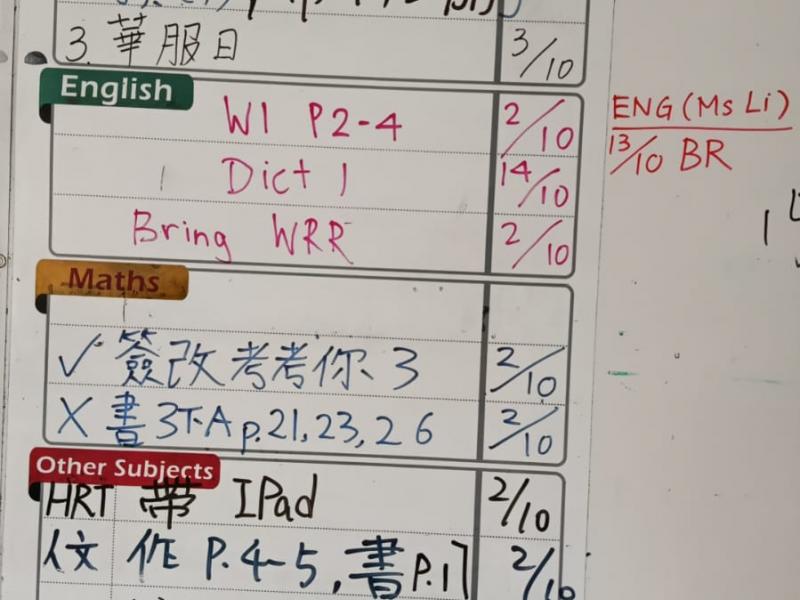 3. 華服日 3/10
English
W1 P2-4 2/10
Dict 1 14/10
Bring WRR 2/10
ENG (Ms Li)
13/10 BR
Maths
✓ 簽改考考你 3 2/10
X 書3下A p.21,23,26 2/10
Other Subjects
HRT 帶 IPad 2/10
作 P.4-5, 書P.17 2/10